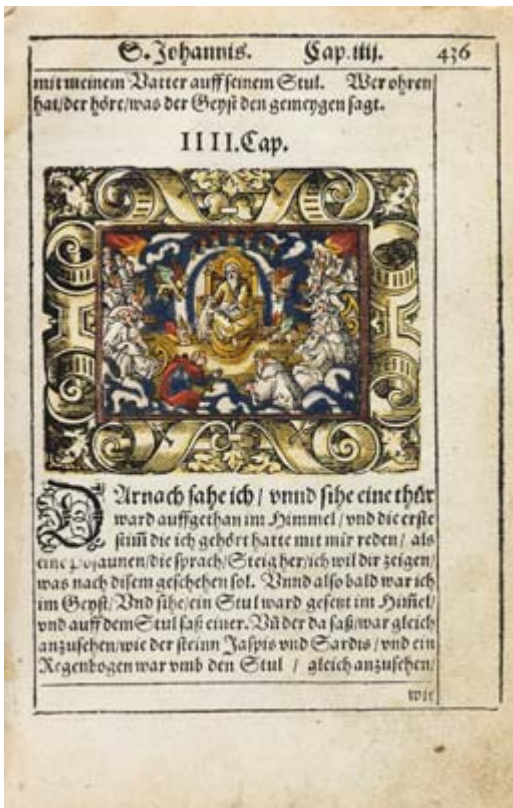 S. Johannis. Cap. iiij. 436
mit meinem Vatter auff seinem Stul. Wer ohren
hat/der höre/was der Geyst den gemeygen sagt.
IIII. Cap.
DArnach sahe ich / vnnd sihe eine thür
ward auffgethan im Himmel / vnd die erste
stim̃ die ich gehört hatte mit mir reden / als
eine Posaunen/die sprach/Steig her/ich wil dir zeigen/
was nach disem geschehen sol. Vnnd also bald war ich
im Geyst/Vnd sihe/ein Stul ward gesetzt im Him̃el/
vnd auff dem Stul saß einer. Vñ der da saß/war gleich
anzusehen/wie der steinn Jaspis vnd Sardis / vnd ein
Regenbogen war vmb den Stul / gleich anzusehen/
wie